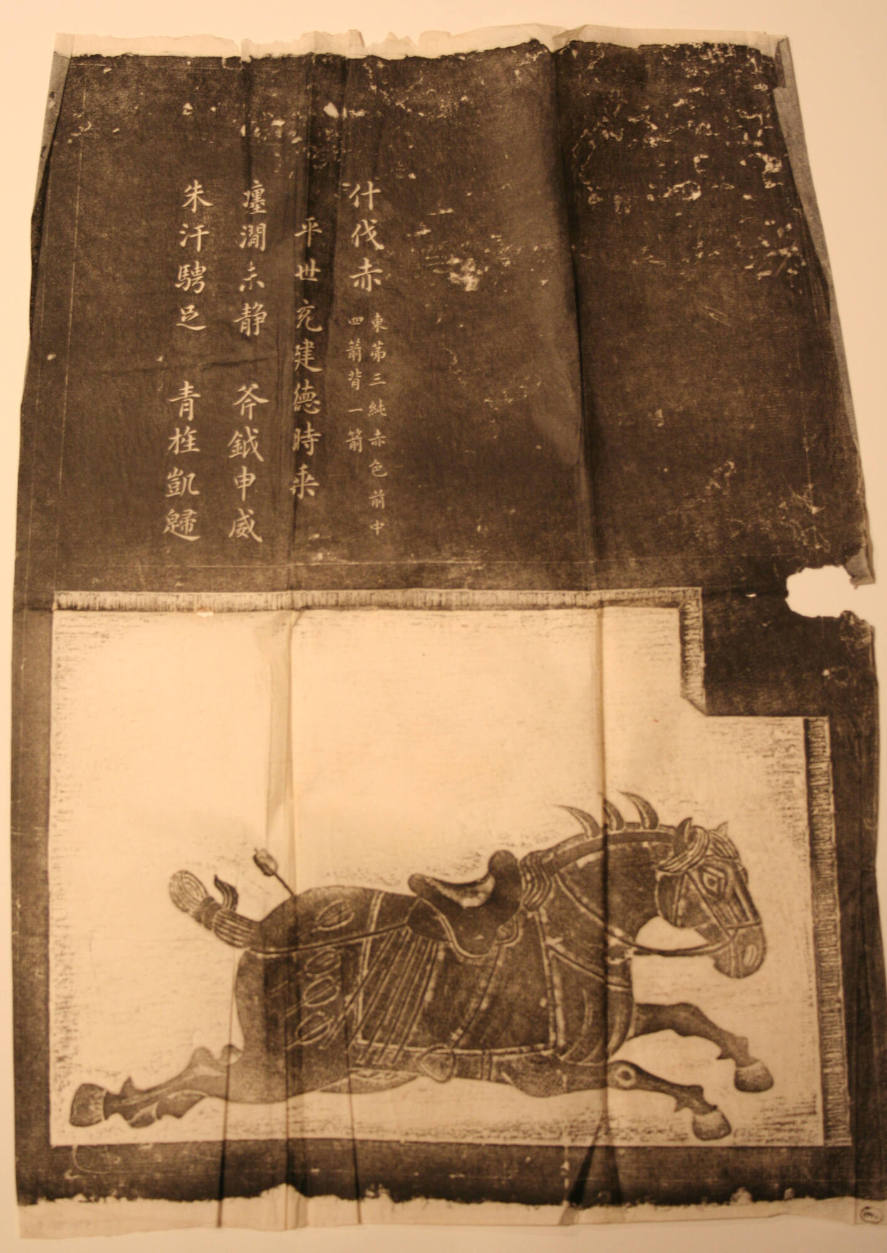 什伐赤
東第三純赤色前中
四箭背一箭
平世充建德時乘
瀍澗未静 斧鉞申威
朱汗騁足 青旌凱歸